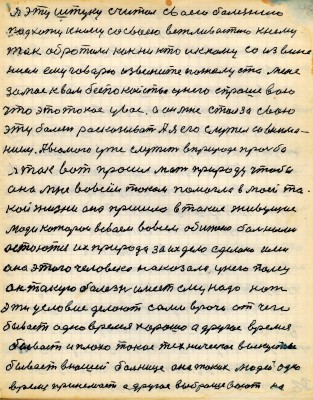 Я эту штуку считал своего балезнию
подхожу книму сосваею вежливастию книму
так обротился как никто искаму со из вине
нием ему говарю извените пожелуста мене
за то я к вам беспокоюсь у него спрошеваю
что это токое у вас. а он мне стал за сваю
эту балезн расказыват А я его слушел со внима-
нием. Авы много уже служит в природе просьба
я так вот просил мат природу чтобы
она мне во всём таком помогла в моей та-
кой жизни она пришло в такие живущие
люди которое всваем вовсем обижено балными
остоются их природа за их дело сделано или
она этого человека наказала, у него палец
он такую балезн имеет ему надо нож
эти условие делоют сами врачи от чего
бывает одно время хорошо а другое время
бывает и плохо такое техническое
бывает внашей балнице она таких людей одно
время принемает а другое выбрасывают на